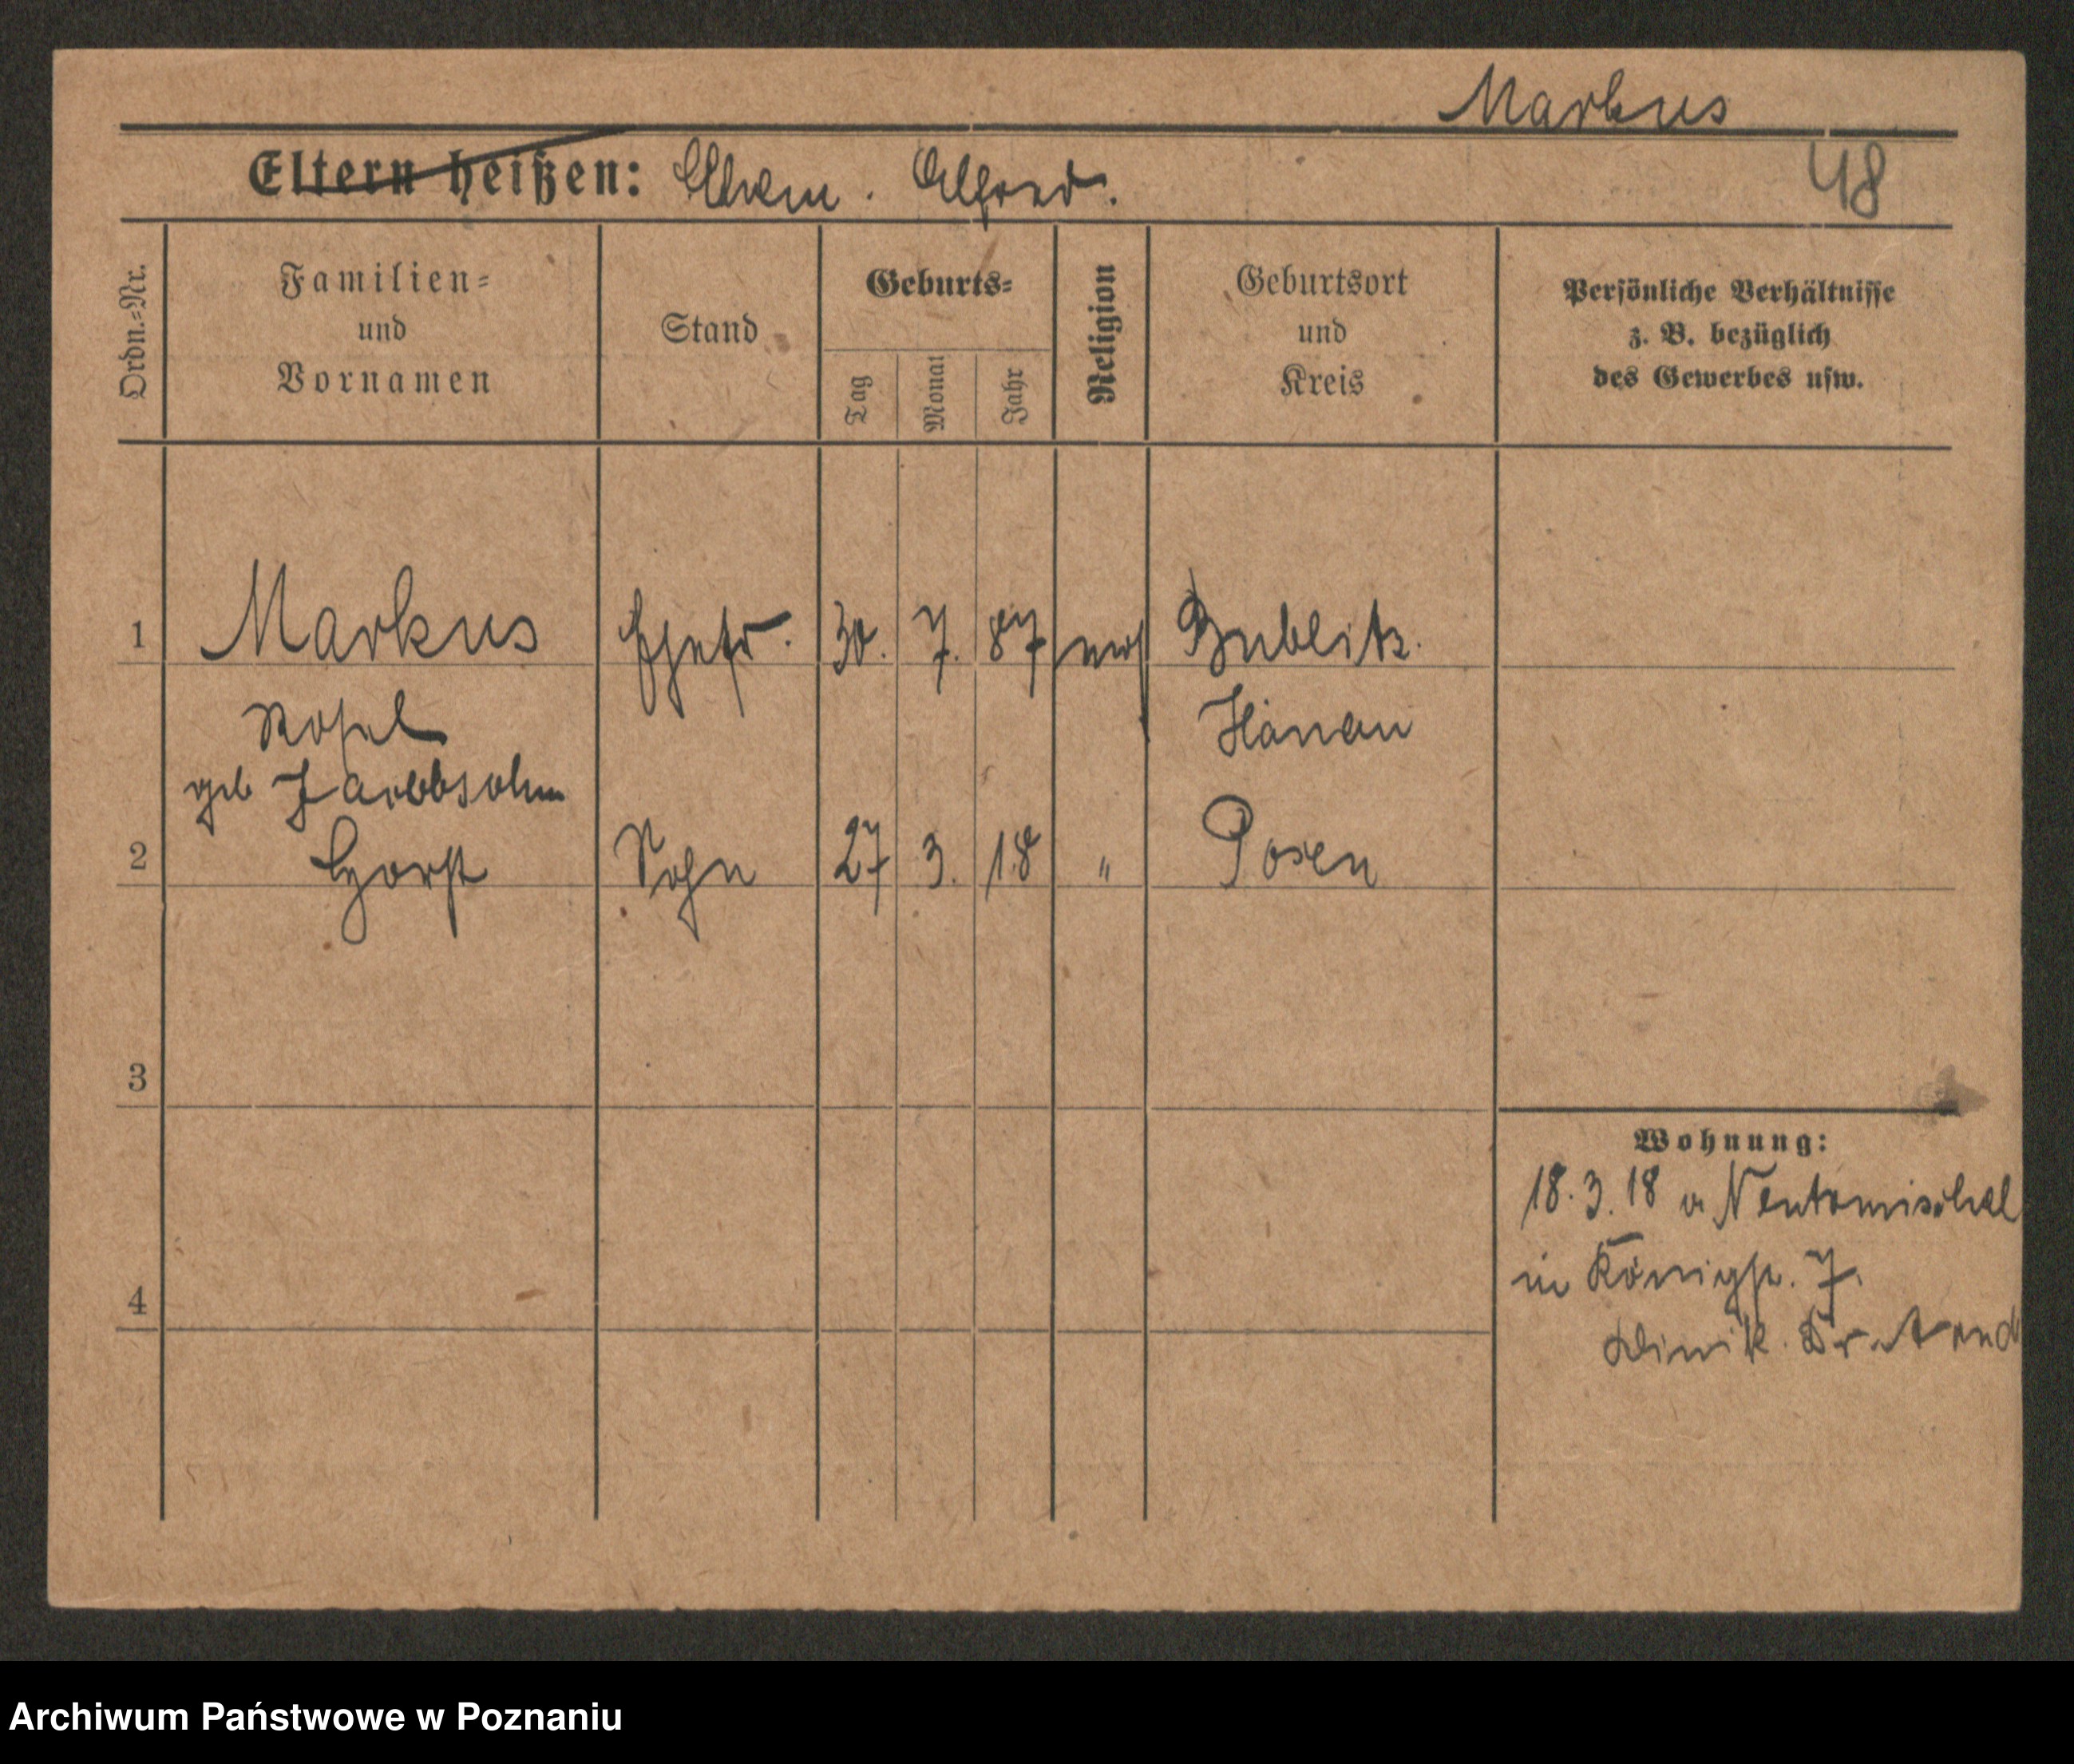 Markus
Eltern heißen: Ehem. Alfred.
48
Ordn.-Nr.
Familien-
und
Vornamen
Stand
Geburts-
Tag
Monat
Jahr
Religion
Geburtsort
und
Kreis
Persönliche Verhältnisse
z. B. bezüglich
des Gewerbes usw.
1 Markus Ehefr. 30. 7. 87 mos Bublitz.
Rosel Hanau
geb Jacobsohn
2 Horst Sohn 27 3. 18 " Posen
3
4
Wohnung:
18.3.18 v Neutomischel
in Königstr. 7.
Klinik. Dr.
Archiwum Państwowe w Poznaniu